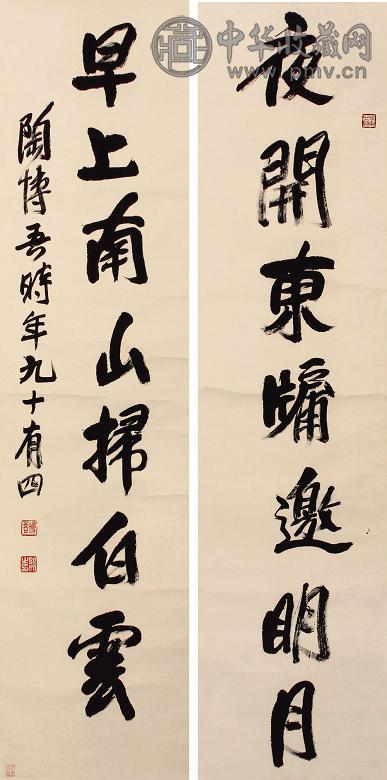 中华收藏网
www.pmv.cn
夜開東牖邀明月
早上南山掃白雲
陶博吾時年九十有四